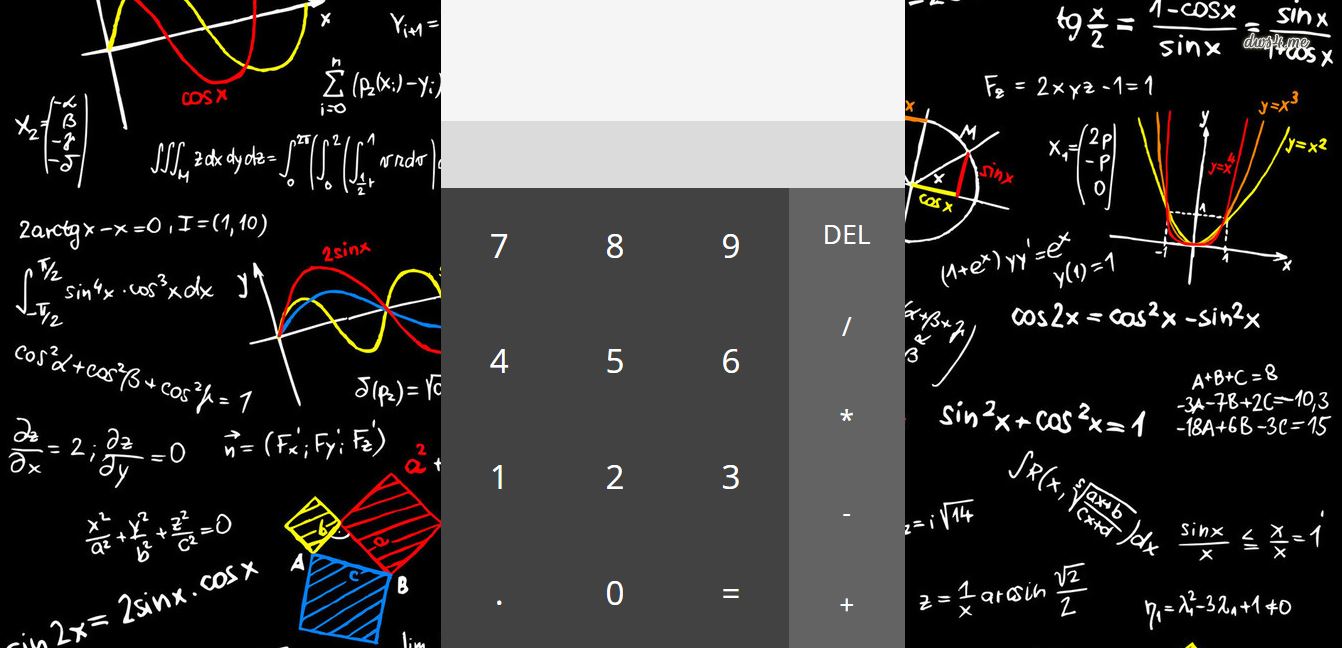 x
cos x
Y_{i+1} =
\sum_{i=0}^{n} (p_2(x_i) - y_i)
X_2 = \begin{pmatrix} -α \\ β \\ -γ \\ -δ \end{pmatrix}
∭_M z dx dy dz = ∫_0^{2π} (∫_0^2 (∫_{½r}^1
2arctgx - x = 0, I = (1,10)
∫_{-π/2}^{π/2} sin⁴x · cos³x dx
y
2sinx
cos²α + cos²β + cos²γ = 1
∂z/∂x = 2; ∂z/∂y = 0
n⃗ = (Fx'; Fy'; Fz')
a²
x²/a² + y²/b² + z²/c² = 0
b
a
A
c
B
sin 2x = 2sin x · cos x
lim
7 8 9 DEL
4 5 6 /
1 2 3 *
. 0 = -
+
tg x/2 = (1-cosx)/sinx = sin x/(1+cos x)
F_z = 2xyz - 1 = 1
x
M
x
sinx
cosx
X_1 = \begin{pmatrix} 2p \\ -p \\ 0 \end{pmatrix}
y
y=x³
y=x²
y=x⁴
1
-1
1
x
(1+e^x) yy' = e^x
y(1) = 1
cos2x = cos²x - sin²x
A+B+C=8
-3A-7B+2C=-10,3
-18A+6B-3C=15
sin²x + cos²x = 1
∫R(x, \sqrt[s]{(ax+b)/(cx+d)}) dx
z = i√14
sinx/x ≤ x/x = 1
z = 1/x arcsin √2/2
η_1 = λ_1² - 3λ_1 + 1 ≠ 0